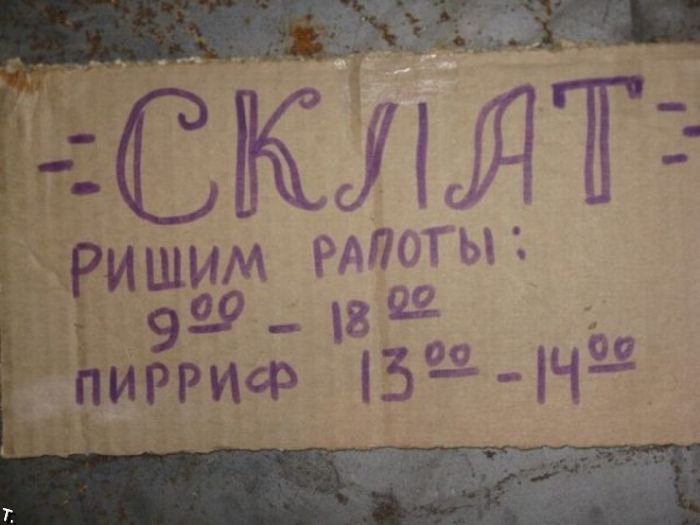 = СКЛАТ =
РИШИМ РАПОТЫ:
9⁰⁰ - 18⁰⁰
ПИРРИФ 13⁰⁰ - 14⁰⁰
Т.